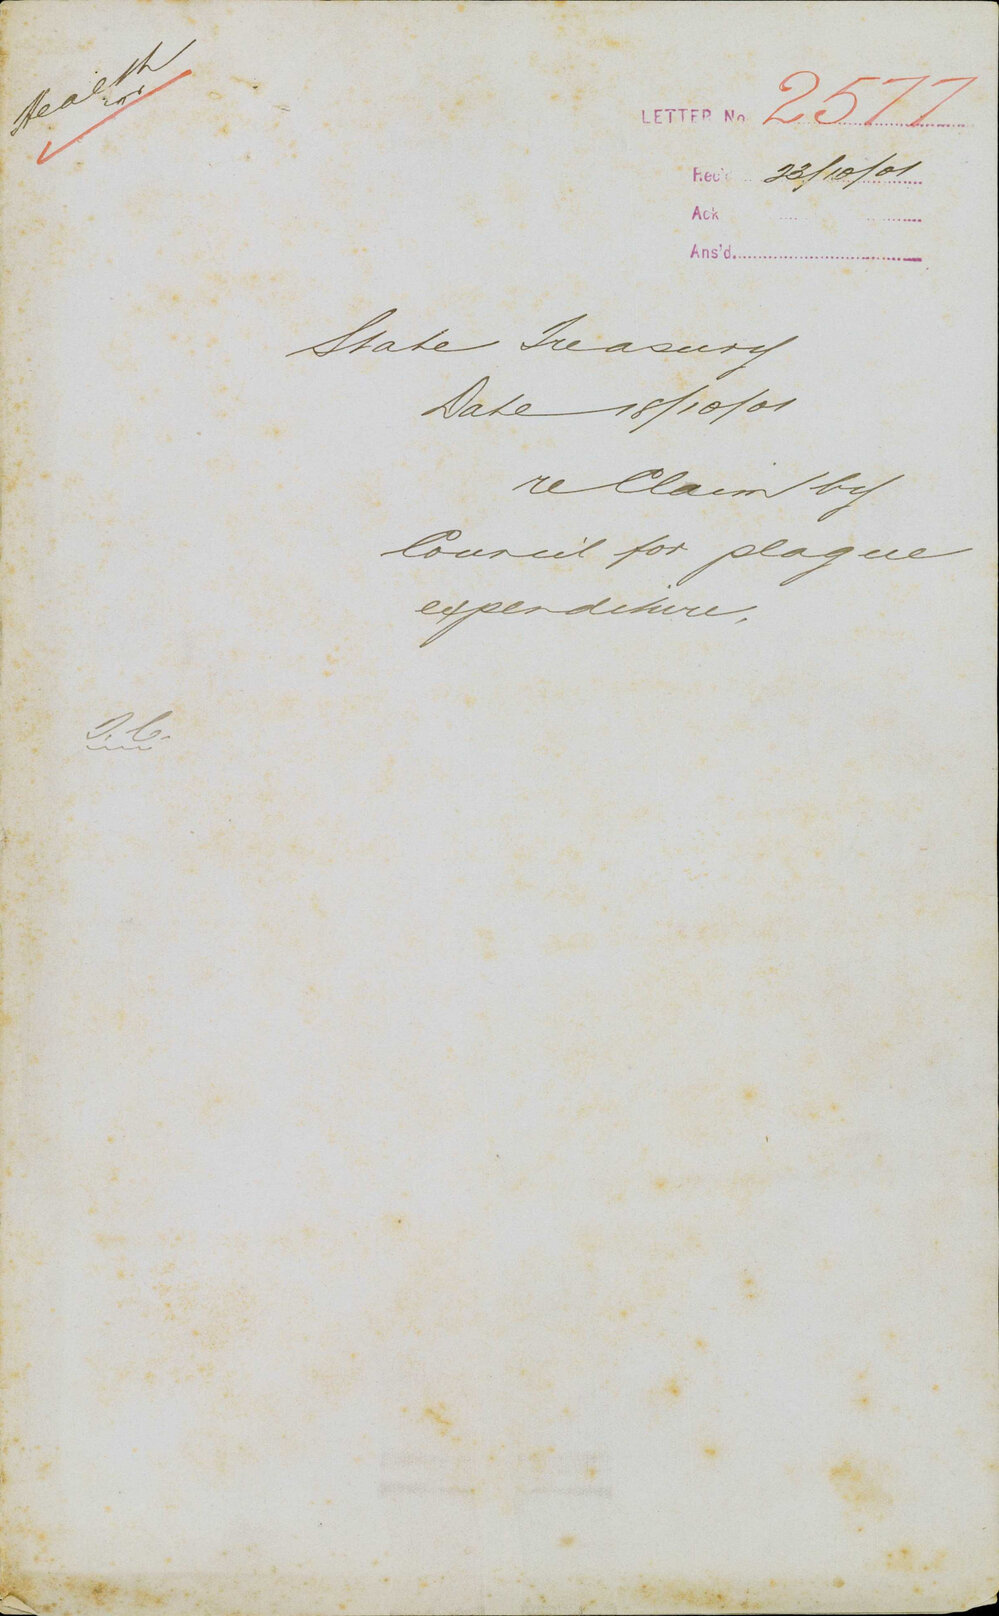 Health
LETTER No 2577
Rec'd 23/10/01
Ack
Ans'd
State Treasury
Date 18/10/01
re Claim by
Council for plague
expenditure.